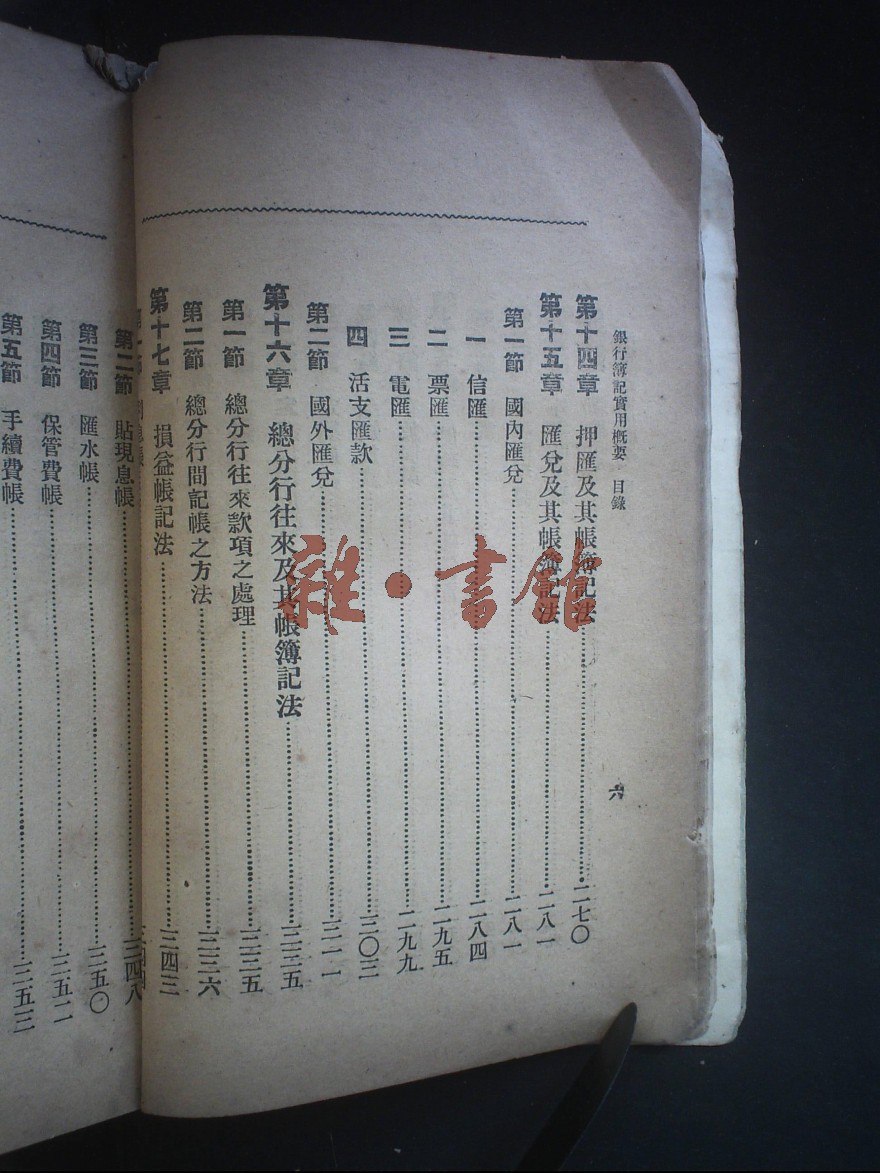 銀行簿記實用概要 目錄
六
第十四章 押匯及其帳簿記法 二七〇
第十五章 匯兌及其帳簿記法 二八一
第一節 國內匯兌 二八一
一 信匯 二八四
二 票匯 二九五
三 電匯 二九九
四 活支匯款 三〇三
第二節 國外匯兌 三一一
第十六章 總分行往來及其帳簿記法 三三五
第一節 總分行往來款項之處理 三三五
第二節 總分行間記帳之方法 三三六
第十七章 損益帳記法 三四三
第二節 貼現息帳 三四八
第三節 匯水帳 三五〇
第四節 保管費帳 三五二
第五節 手續費帳 三五三
雜·書館